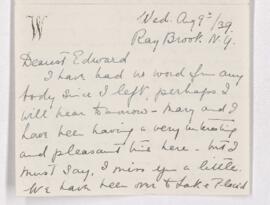 W
Wed. Aug 9th/39.
Ray Brook. N.Y.
Dearest Edward
I have had no word from any
body since I left, perhaps I
will hear tomorrow - Mary and I
have been having a very interesting
and pleasant time here - but I
must say, I miss you a little.
We have been over to Lake Placid